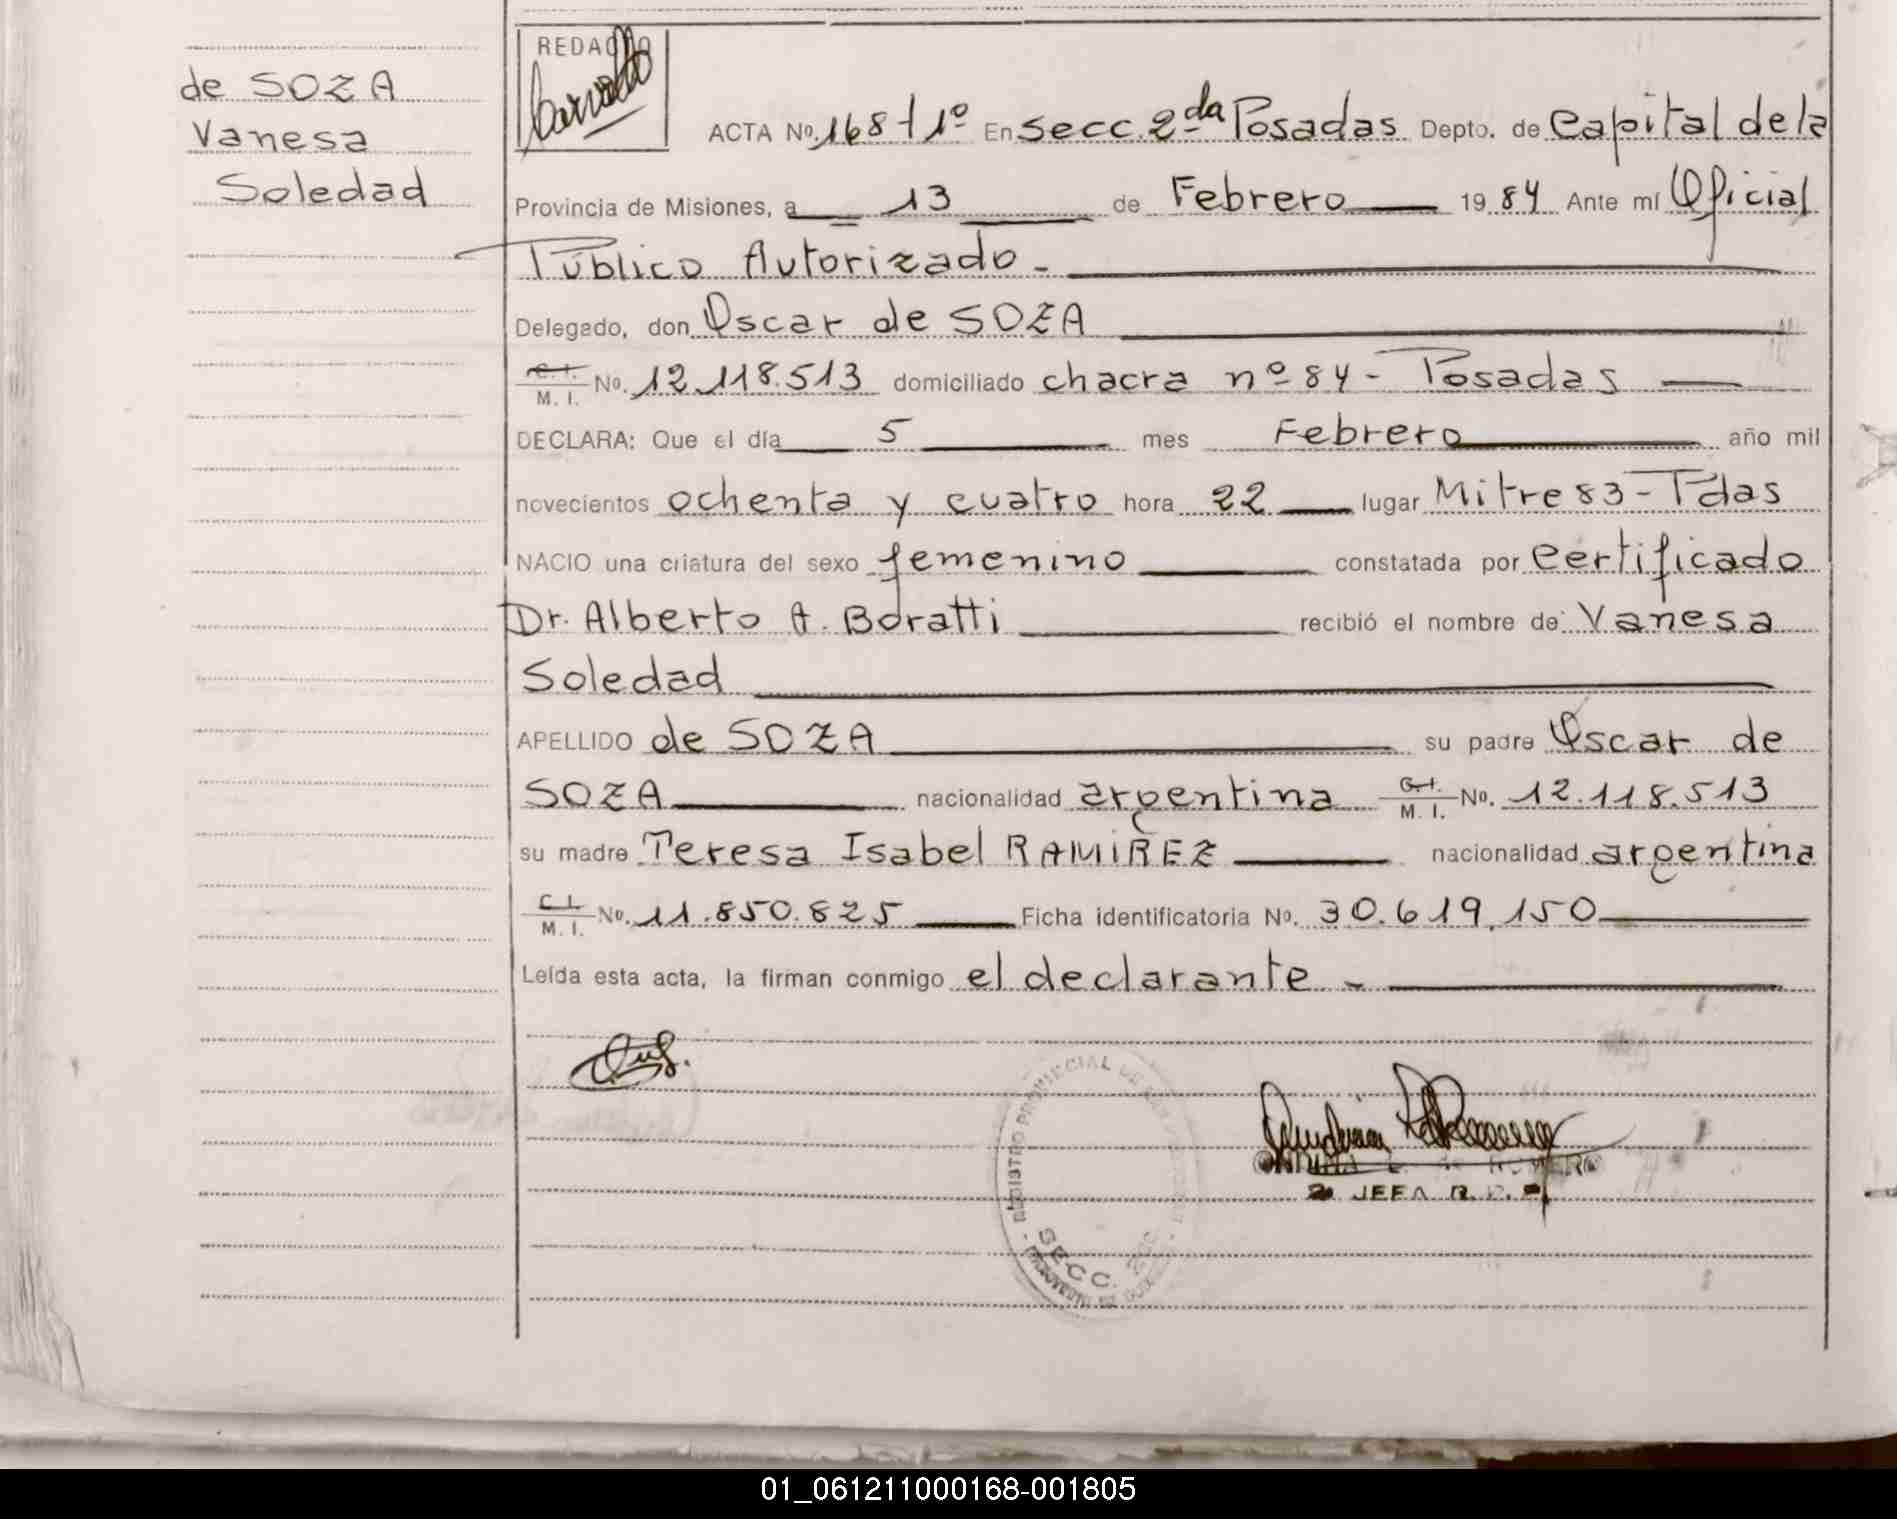 de SOZA
Vanesa
Soledad
REDACTO
ACTA No. 168-t 1º En Secc. 2da Posadas Depto. de Capital de la
Provincia de Misiones, a 13 de Febrero 1984 Ante mí Oficial
Público Autorizado -
Delegado, don Oscar de SOZA
C. I. M. I. No. 12.118.513 domiciliado chacra nº 84 - Posadas
DECLARA: Que el día 5 mes Febrero año mil
novecientos ochenta y cuatro hora 22 lugar Mitre 83 - Pdas
NACIO una criatura del sexo femenino constatada por certificado
Dr. Alberto A. Boratti recibió el nombre de: Vanesa
Soledad
APELLIDO de SOZA su padre Oscar de
SOZA nacionalidad argentina C. I. M. I. No. 12.118.513
su madre Teresa Isabel RAMIREZ nacionalidad argentina
C. I. M. I. No. 11.850.825 Ficha identificatoria No. 30.619.150
Leída esta acta, la firman conmigo el declarante -
REGISTRO PROVINCIAL DE
SECC.
JEFA R. P.
01_061211000168-001805